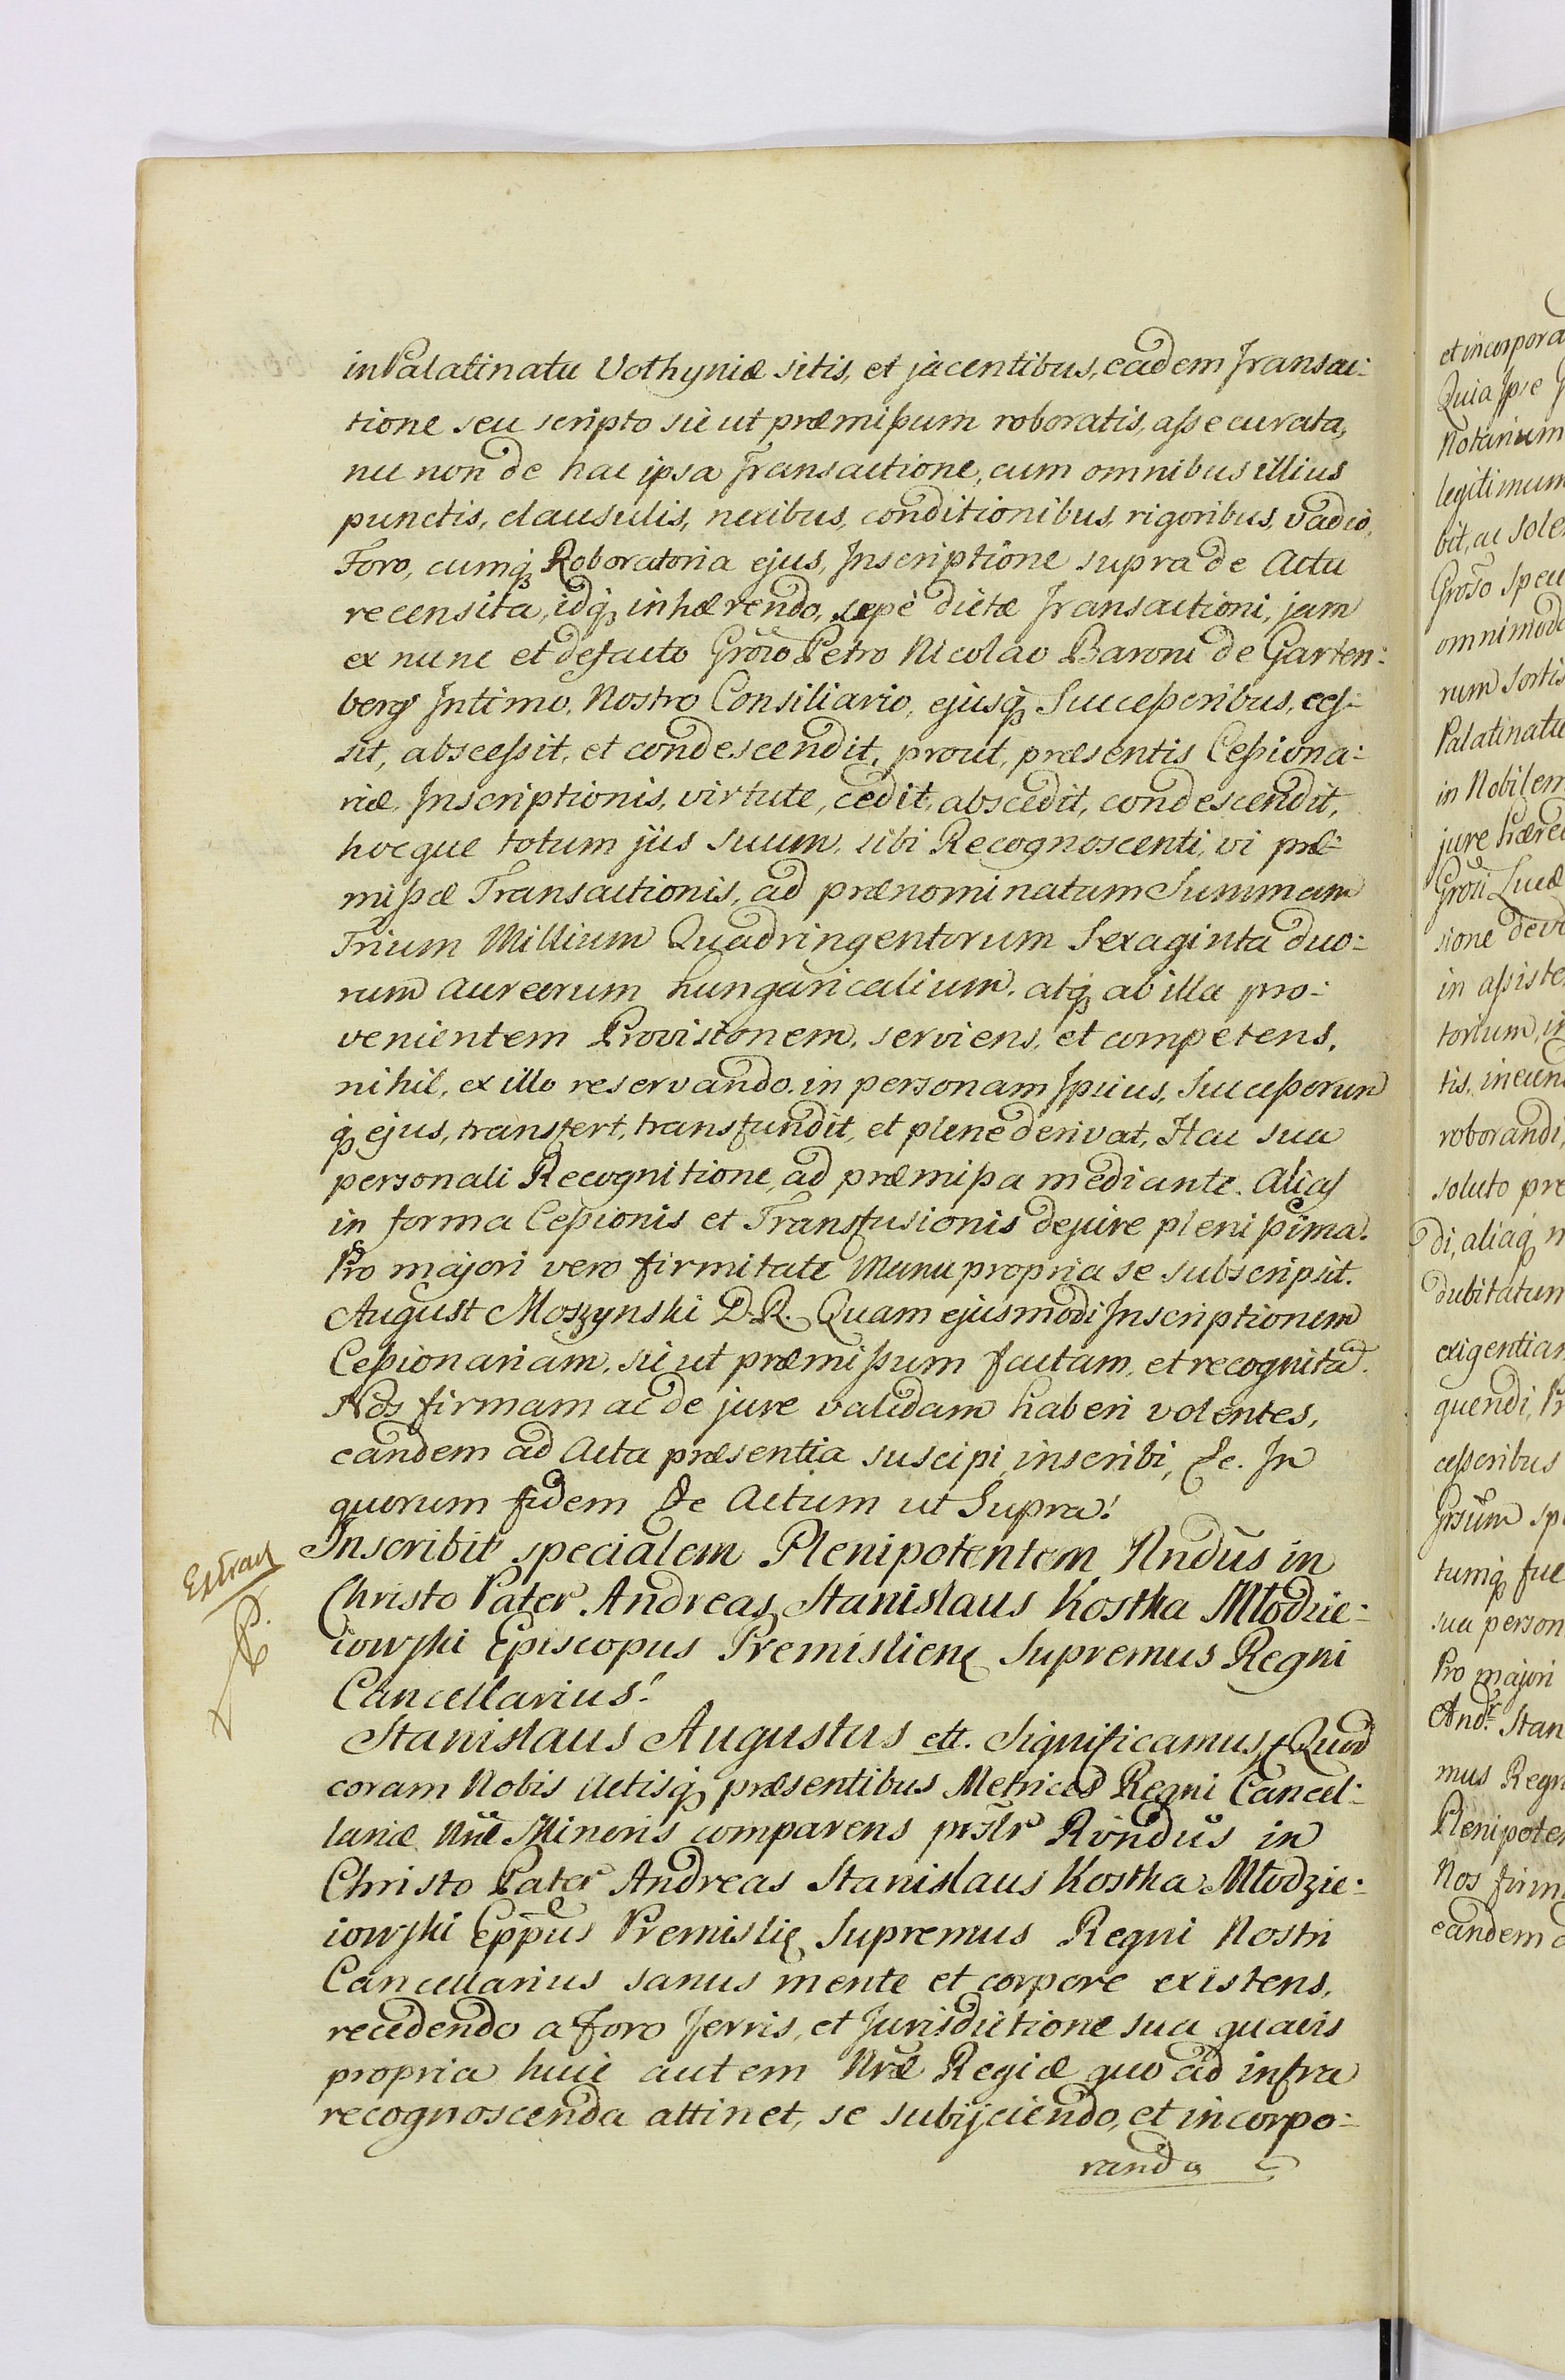 in Palatinatu Vothyniæ sitis, et jacentibus, eadem Transac:
tione seu scripto sic ut præmißum roboratis, aßecurata,
nec non de hac ipsa Transactione, cum omnibus illius
punctis, clausulis, nexibus, conditionibus, rigoribus, vadio,
Foro, cumq̃ Roboratoria ejus, Inscriptione supra de Actu
recensita, idq̃ inhærendo, sæpè dictæ Transactioni, jam
ex nunc et defacto Gr̃oso Petro Nicolao Baroni de Garten:
berg Intimo, Nostro Consiliario, ejusq̃ Succeßoribus, ces:
sit, abscessit, et condescendit, prout, præsentis Ceßiona:
riæ, Inscriptionis, virtute, cedit, abscedit, condescendit,
hocque totum jus suum, sibi Recognoscenti, vi præ:
mißæ Transactionis, ad prænominatam Summam
Trium Millium Quadringentorum Sexaginta duo:
rum aureorum hungaricalium, atq̃ ab illa pro:
venientem Provisionem, serviens, et competens,
nihil, ex illo reservando, in personam Ipsius, Succeßorum
q̃ ejus, transfert, transfundit, et plene derivat, Hac sua
personali Recognitione, ad præmißa mediante. Alias
in forma Ceßionis et Transfusionis de jure plenißima.
Pro majori vero firmitate Manu propria se subscripsit.
August Moszynski D. R. Quam ejusmodi Inscriptionem
Ceßionariam, sic ut præmißum factam, et recognitã.
Nos firmam ac de jure validam haberi volentes,
eandem ad Acta præsentia suscipi, inscribi, &c. In
quorum fidem &c Actum ut Supra.
Extrad
Inscribit specialem Plenipotentem Rndũs in
Christo Pater Andreas Stanislaus Kostka Młodzie:
iowski Episcopus Premislien Supremus Regni
Cancellarius.
Stanislaus Augustus ett. Significamus, &. Quod
coram Nobis Actisq̃ præsentibus Metrices Regni Cancel:
lariæ Nr̃æ Minoris comparens pr̃slr Rṽndũs in
Christo Pater Andreas Stanislaus Kostka Młodzie:
iowski Epp̃us Premisliẽ Supremus Regni Nostri
Cancellarius sanus mente et corpore existens,
recedendo a foro Terris, et Jurisdictione sua quavis
propria huic autem Nr̃æ Regiæ quo ad infra
recognoscenda attinet, se subijciendo, et incorpo:
rando
et incorpora
Quia Ipse
Notarium
legitimum
bit, ac sole
Gr̃oso spec
omnimoda
rum sortis
Palatinatu
in Nobilem
jure hære
Gr̃osi Lucæ
sione devo
in aßiste
torium, in
tis, ineun
roborandi,
soluto pre
di, aliaq̃
dubitatum
exigentiam
quendi, Pr
ceßoribus
Gr̃sum sp
tumq̃ fue
sua person
Pro majori
And: Stan
mus Regn
Plenipote
Nos firma
eandem